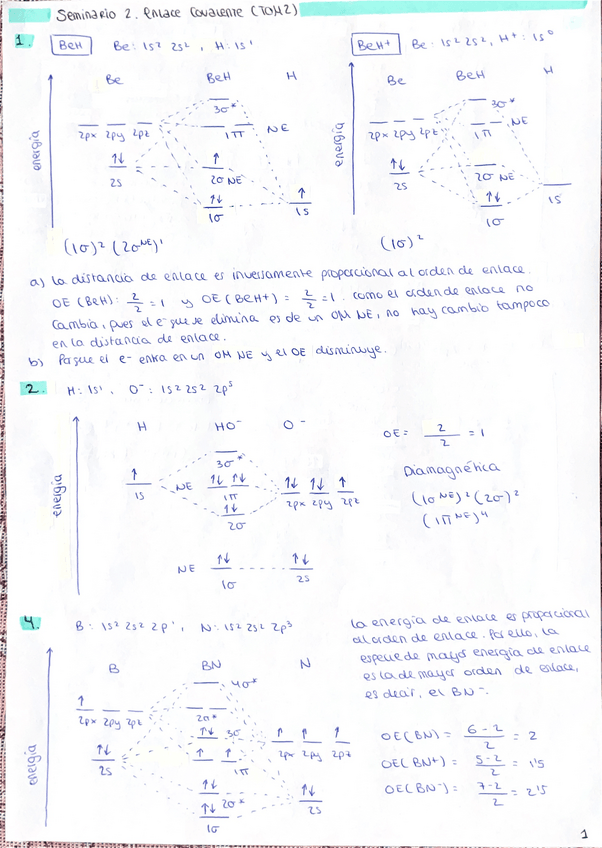 Seminario 2. Enlace Covalente (TOM2)
1. BeH Be: 1s² 2s², H: 1s¹
BeH+ Be: 1s² 2s², H+: 1s⁰
Be BeH H
Be BeH H
energía
3σ*
2px 2py 2pz 1π NE
↑↓ 2s
↑ 2σ NE
↑↓ 1σ
↑ 1s
energía
3σ*
2px 2py 2pz 1π NE
↑↓ 2s
2σ NE
↑↓ 1σ
1s
(1σ)² (2σ^NE)¹
(1σ)²
a) La distancia de enlace es inversamente proporcional al orden de enlace.
OE (BeH): 2/2 = 1 y OE (BeH+) = 2/2 = 1. como el orden de enlace no
cambia, pues el e⁻ que se elimina es de un OM NE, no hay cambio tampoco
en la distancia de enlace.
b) Porque el e⁻ entra en un OM NE y el OE disminuye.
2. H: 1s¹, O⁻: 1s² 2s² 2p⁵
H HO⁻ O⁻
energía
3σ*
↑ 1s
NE ↑↓ ↑↓ 1π
↑↓ ↑↓ ↑ 2px 2py 2pz
↑↓ 2σ
NE ↑↓ 1σ
↑↓ 2s
OE = 2/2 = 1
Diamagnética
(1σ^NE)² (2σ)²
(1π^NE)⁴
4. B: 1s² 2s² 2p¹, N: 1s² 2s² 2p³
B BN N
energía
4σ*
↑ 2px 2py 2pz
2σ*
↑↓ 3σ
↑ ↑ 1π
↑ ↑ ↑ 2px 2py 2pz
↑↓ 2s
↑↓
↑↓ 2σ*
1σ
↑↓ 2s
La energía de enlace es proporcional
al orden de enlace. Por ello, la
especie de mayor energía de enlace
es la de mayor orden de enlace,
es decir, el BN⁻.
OE(BN) = 6-2/2 = 2
OE(BN+) = 5-2/2 = 1'5
OE(BN⁻) = 7-2/2 = 2'5
1